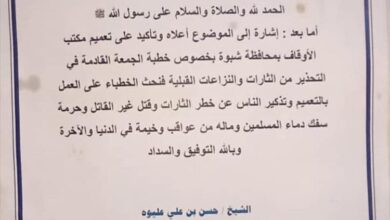 الحمد لله والصلاة والسلام على رسول الله ﷺ
أما بعد : إشارة إلى الموضوع أعلاه وتأكيد على تعميم مكتب
الأوقاف بمحافظة شبوة بخصوص خطبة الجمعة القادمة في
التحذير من الثارات والنزاعات القبلية فنحث الخطباء على العمل
بالتعميم وتذكير الناس عن خطر الثارات وقتل غير القاتل وحرمة
سفك دماء المسلمين وماله من عواقب وخيمة في الدنيا والآخرة
وبالله التوفيق والسداد
الشيخ / حسن بن علي عليوه